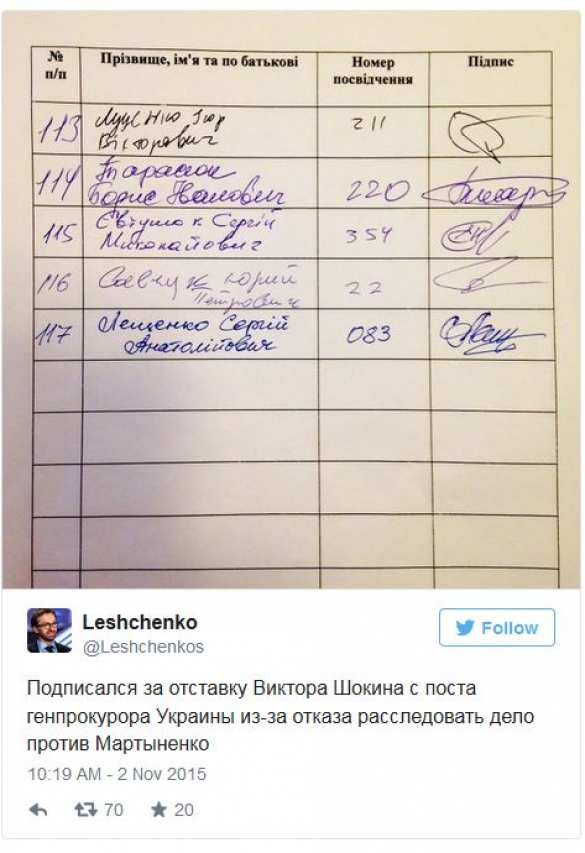 № п/п Прізвище, ім'я та по батькові Номер посвідчення Підпис
113 Луценко Ігор Вікторович 211
114 Тарасюк Борис Іванович 220
115 Євтушок Сергій Миколайович 354
116 Савчук Юрий Петрович 22
117 Лещенко Сергій Анатолійович 083
Leshchenko
@Leshchenkos
Follow
Подписался за отставку Виктора Шокина с поста
генпрокурора Украины из-за отказа расследовать дело
против Мартыненко
10:19 AM - 2 Nov 2015
70 20